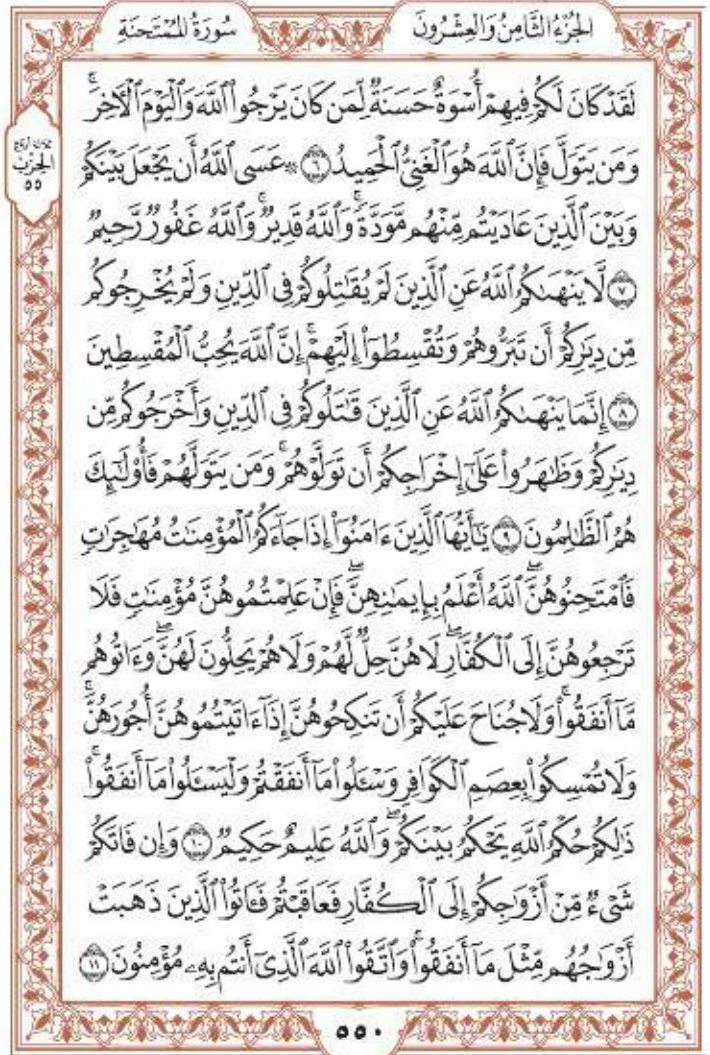 سُورَةُ المُمْتَحنَةِ
الجُزْءُ الثَّامِنُ وَالعِشْرُونَ
لَقَدْ كَانَ لَكُمْ فِيهِمْ أُسْوَةٌ حَسَنَةٌ لِّمَن كَانَ يَرْجُوا۟ ٱللَّهَ وَٱلْيَوْمَ ٱلْـَٔاخِرَ ۚ
وَمَن يَتَوَلَّ فَإِنَّ ٱللَّهَ هُوَ ٱلْغَنِىُّ ٱلْحَمِيدُ ٦ ۞ عَسَى ٱللَّهُ أَن يَجْعَلَ بَيْنَكُمْ
وَبَيْنَ ٱلَّذِينَ عَادَيْتُم مِّنْهُم مَّوَدَّةً ۚ وَٱللَّهُ قَدِيرٌ ۚ وَٱللَّهُ غَفُورٌ رَّحِيمٌ
٧ لَّا يَنْهَىٰكُمُ ٱللَّهُ عَنِ ٱلَّذِينَ لَمْ يُقَـٰتِلُوكُمْ فِى ٱلدِّينِ وَلَمْ يُخْرِجُوكُم
مِّن دِيَـٰرِكُمْ أَن تَبَرُّوهُمْ وَتُقْسِطُوٓا۟ إِلَيْهِمْ ۚ إِنَّ ٱللَّهَ يُحِبُّ ٱلْمُقْسِطِينَ
٨ إِنَّمَا يَنْهَىٰكُمُ ٱللَّهُ عَنِ ٱلَّذِينَ قَـٰتَلُوكُمْ فِى ٱلدِّينِ وَأَخْرَجُوكُم مِّن
دِيَـٰرِكُمْ وَظَـٰهَرُوا۟ عَلَىٰٓ إِخْرَاجِكُمْ أَن تَوَلَّوْهُمْ ۚ وَمَن يَتَوَلَّهُمْ فَأُو۟لَـٰٓئِكَ
هُمُ ٱلظَّـٰلِمُونَ ٩ يَـٰٓأَيُّهَا ٱلَّذِينَ ءَامَنُوٓا۟ إِذَا جَآءَكُمُ ٱلْمُؤْمِنَـٰتُ مُهَـٰجِرَٰتٍ
فَٱمْتَحِنُوهُنَّ ۖ ٱللَّهُ أَعْلَمُ بِإِيمَـٰنِهِنَّ ۖ فَإِنْ عَلِمْتُمُوهُنَّ مُؤْمِنَـٰتٍ فَلَا
تَرْجِعُوهُنَّ إِلَى ٱلْكُفَّارِ ۖ لَا هُنَّ حِلٌّ لَّهُمْ وَلَا هُمْ يَحِلُّونَ لَهُنَّ ۖ وَءَاتُوهُم
مَّآ أَنفَقُوا۟ ۚ وَلَا جُنَاحَ عَلَيْكُمْ أَن تَنكِحُوهُنَّ إِذَآ ءَاتَيْتُمُوهُنَّ أُجُورَهُنَّ ۚ
وَلَا تُمْسِكُوا۟ بِعِصَمِ ٱلْكَوَافِرِ وَسْـَٔلُوا۟ مَآ أَنفَقْتُمْ وَلْيَسْـَٔلُوا۟ مَآ أَنفَقُوا۟ ۚ
ذَٰلِكُمْ حُكْمُ ٱللَّهِ يَحْكُمُ بَيْنَكُمْ ۖ وَٱللَّهُ عَلِيمٌ حَكِيمٌ ١٠ وَإِن فَاتَكُمْ
شَىْءٌ مِّنْ أَزْوَٰجِكُمْ إِلَى ٱلْكُفَّارِ فَعَاقَبْتُمْ فَـَٔاتُوا۟ ٱلَّذِينَ ذَهَبَتْ
أَزْوَٰجُهُم مِّثْلَ مَآ أَنفَقُوا۟ ۚ وَٱتَّقُوا۟ ٱللَّهَ ٱلَّذِىٓ أَنتُم بِهِۦ مُؤْمِنُونَ ١١
الحِزْبُ
٥٥
٥٥٠